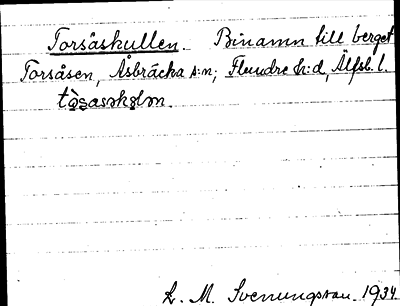 Torsåskullen. Binamn till berget
Torsåsen, Åsbräcka s:n; Flundre h:d, Älfsb. l.
L. M. Svenungsson. 1934.